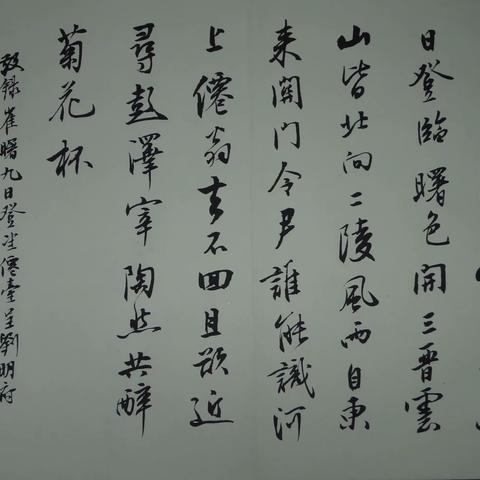 日登臨曙色開三晉雲
山皆北向二陵風雨自東
来關門令尹誰能識河
上僊翁去不回且欲近
尋彭澤宰陶然共醉
菊花杯
敬錄崔曙九日登望僊臺呈劉明府